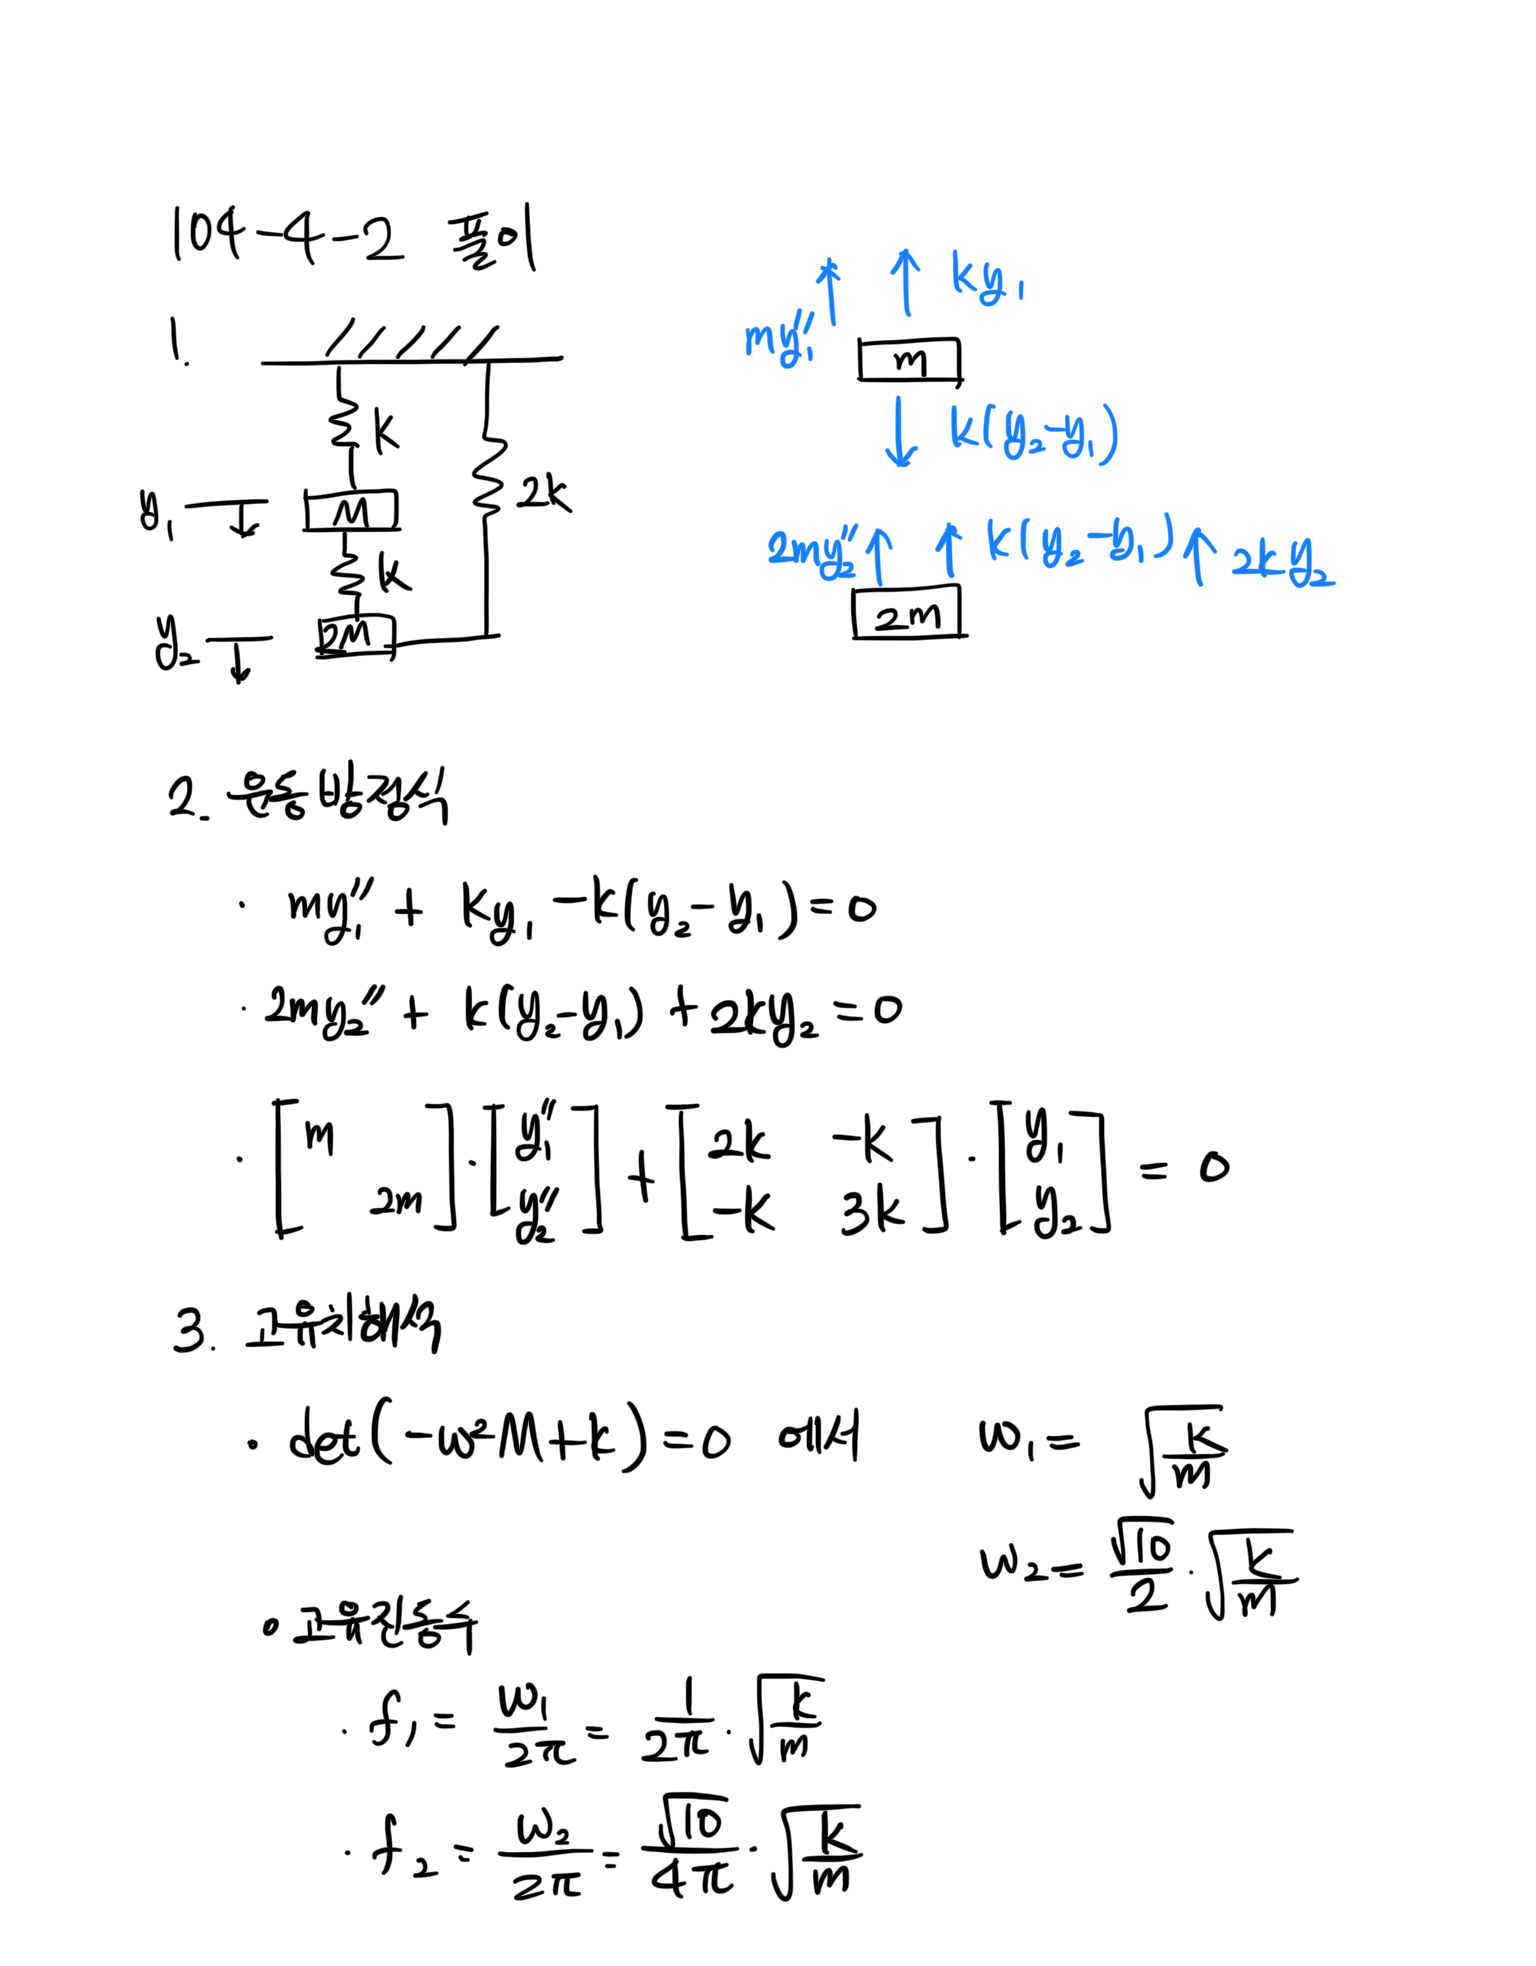 104-4-2 풀이
1.
k
M
k
2M
2k
y₁
y₂
my₁'' ky₁
m
k(y₂-y₁)
2my₂'' k(y₂-y₁) 2ky₂
2m
2. 운동방정식
· my₁'' + ky₁ -k(y₂-y₁)=0
· 2my₂'' + k(y₂-y₁) +2ky₂ =0
· [m 2m]·[y₁'' y₂''] + [2k -k -k 3k]·[y₁ y₂] = 0
3. 고유치해석
· det(-ω²M+k)=0 에서 ω₁= √(k/m)
ω₂= √10/2 · √(k/m)
· 고유진동수
· f₁ = ω₁/2π = 1/2π · √(k/m)
· f₂ = ω₂/2π = √10/4π · √(k/m)